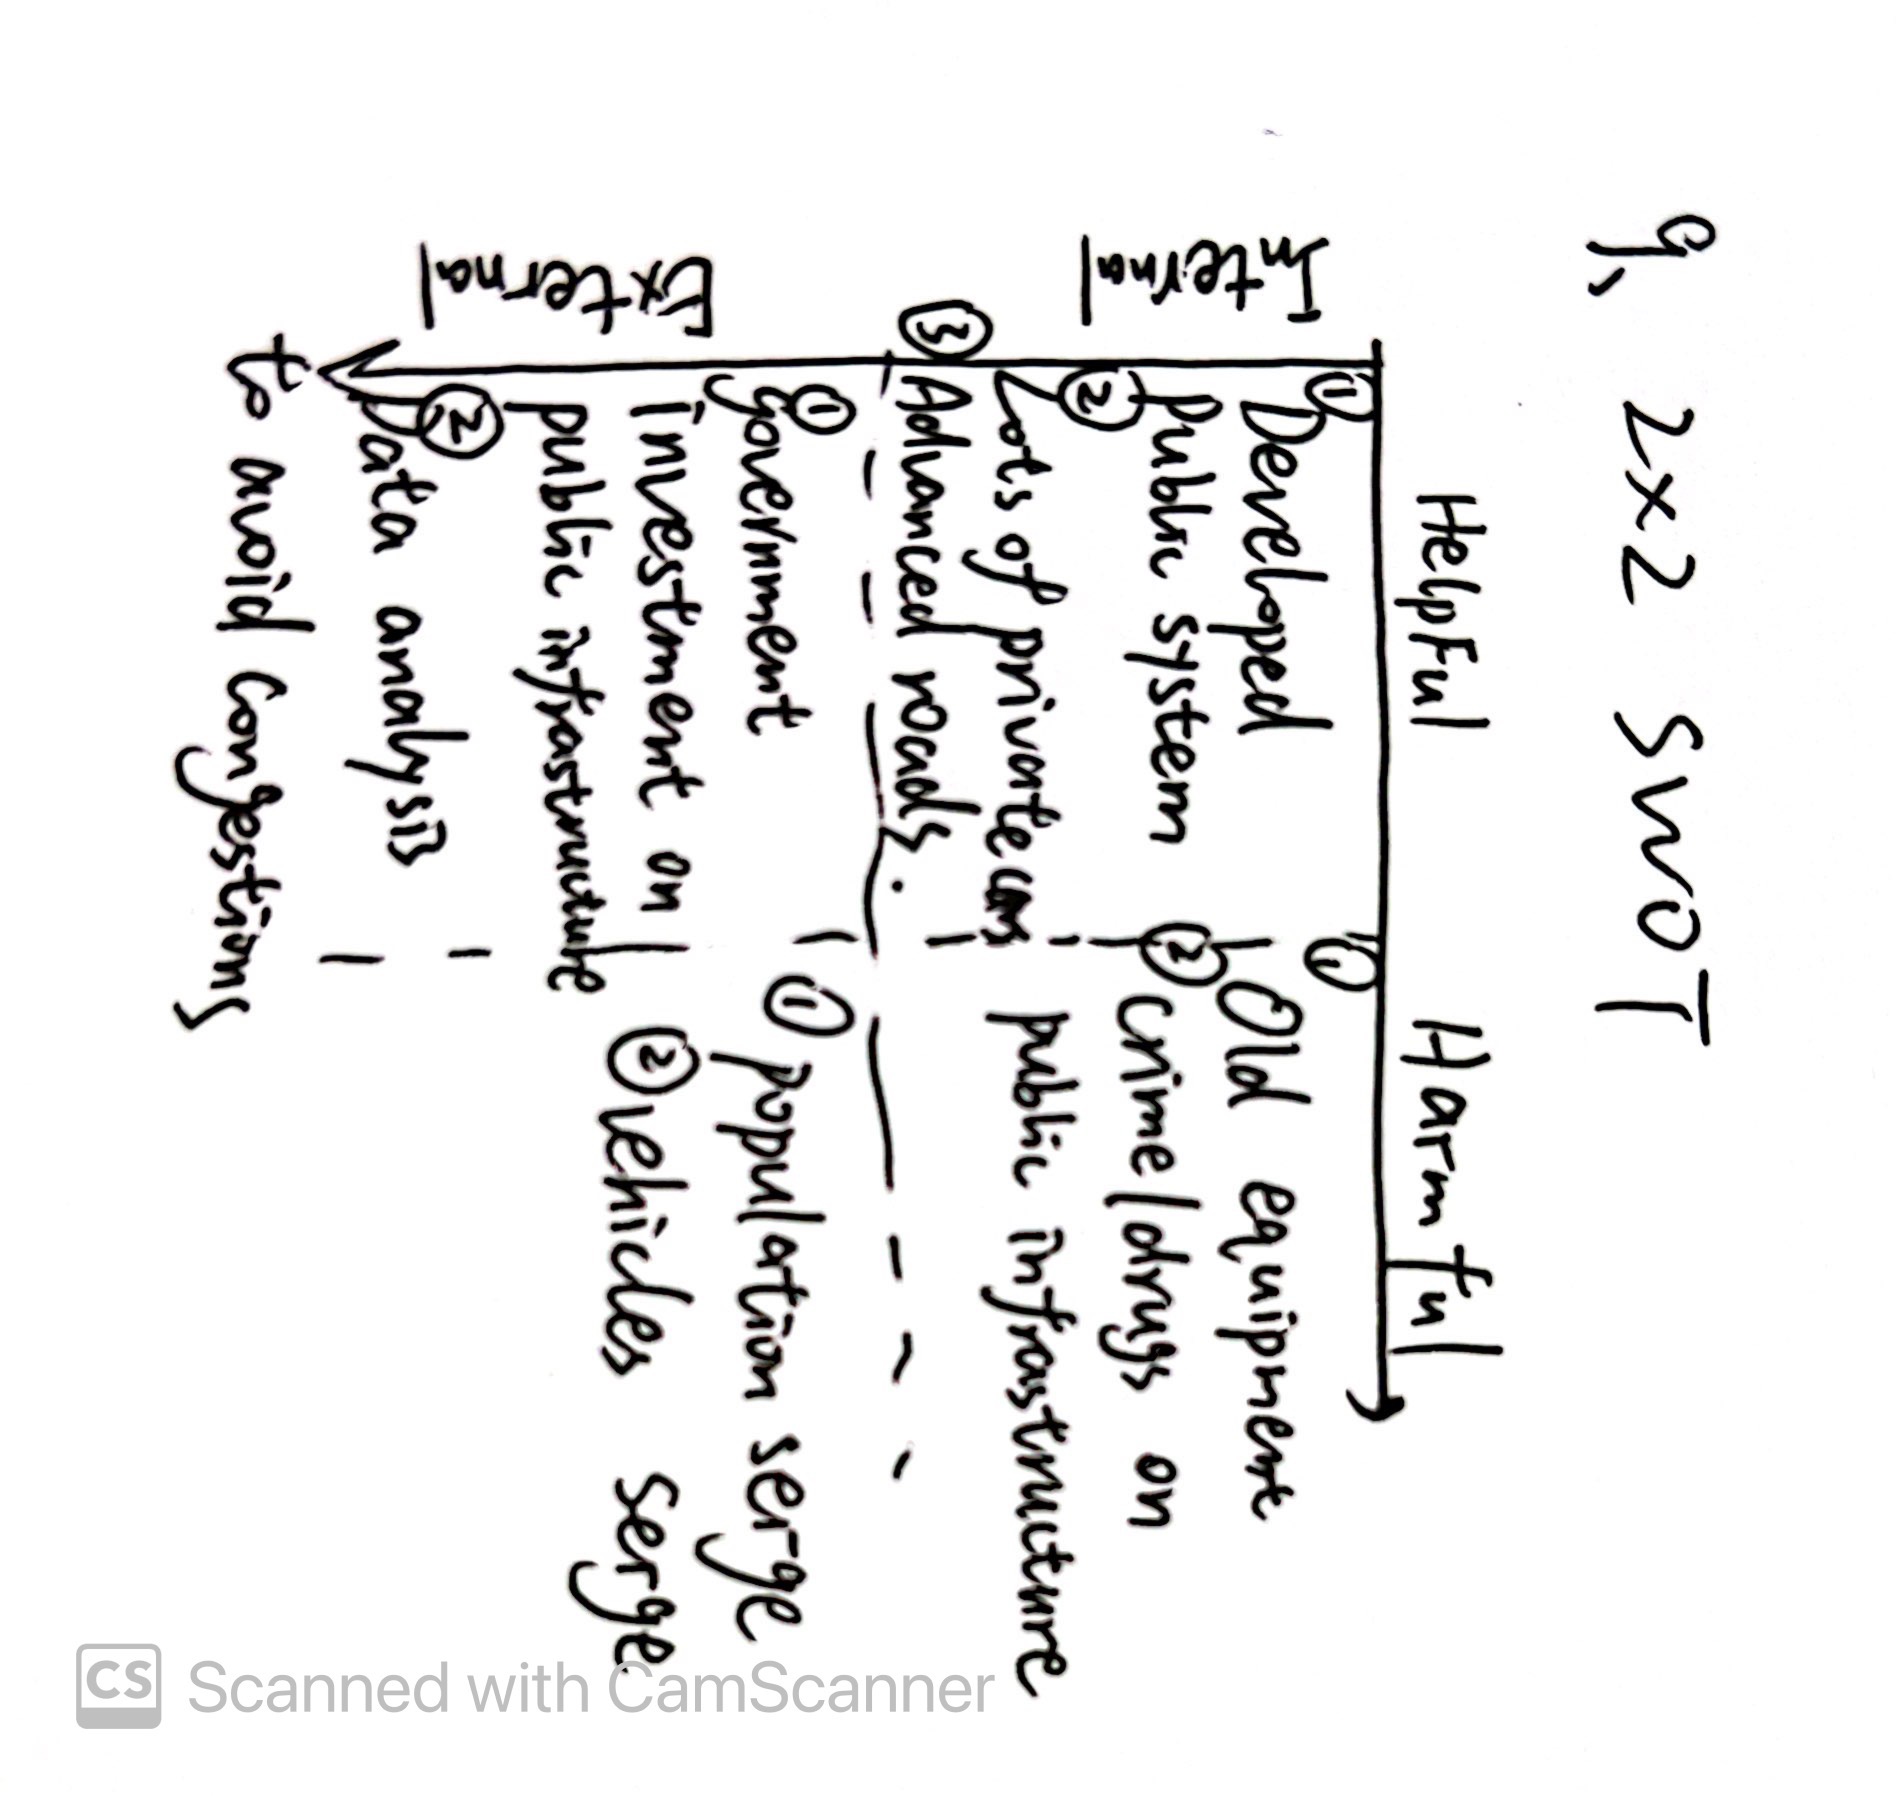 9, 2x2 SWOT
Helpful Harmful
Internal
① Developed
public system
② Lots of private cars
③ Advanced roads.
① Old equipment
② crime/drugs on
public infrastructure
External
① government
investment on
public infrastructure
② Data analysis
to avoid congestions
① population serge
② vehicles serge
CS Scanned with CamScanner